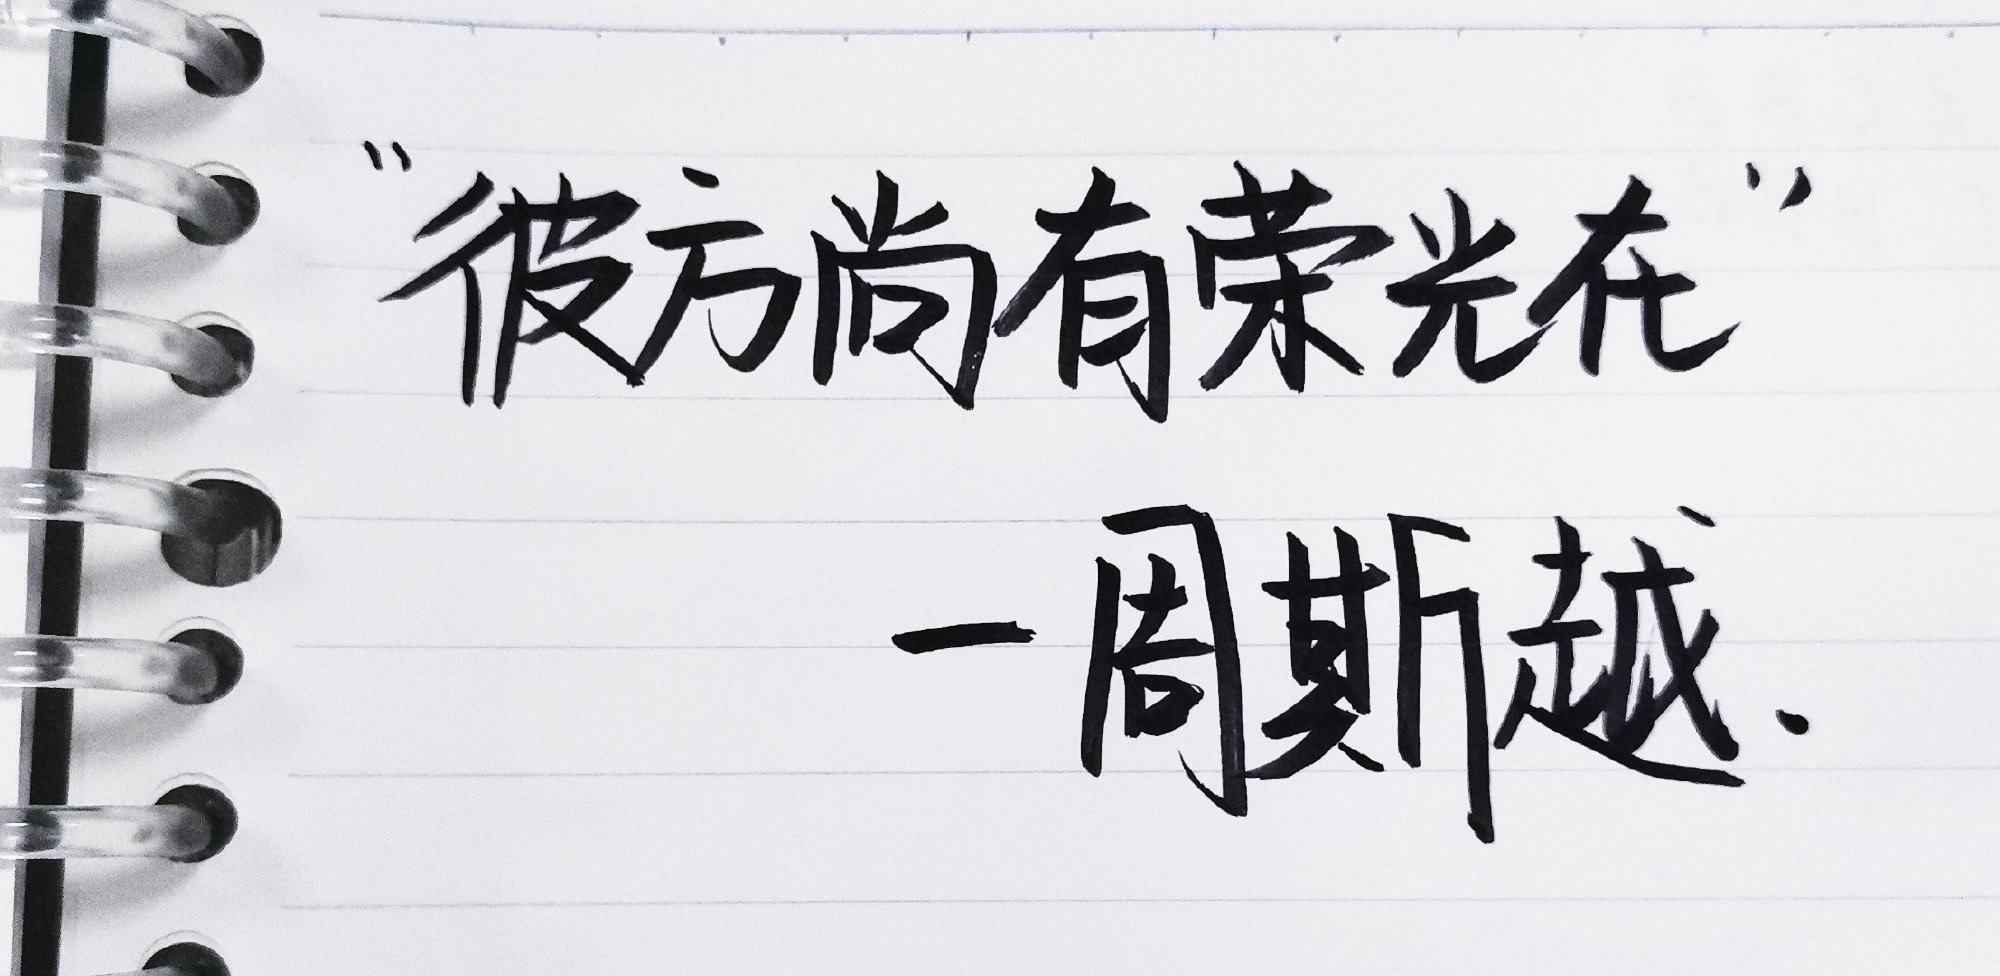 “彼方尚有荣光在”
—周斯越.